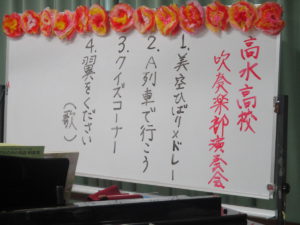 高水高校
吹奏楽部演奏会
1.美空ひばりメドレー
2.A列車で行こう
3.クイズコーナー
4.翼をください
(歌)